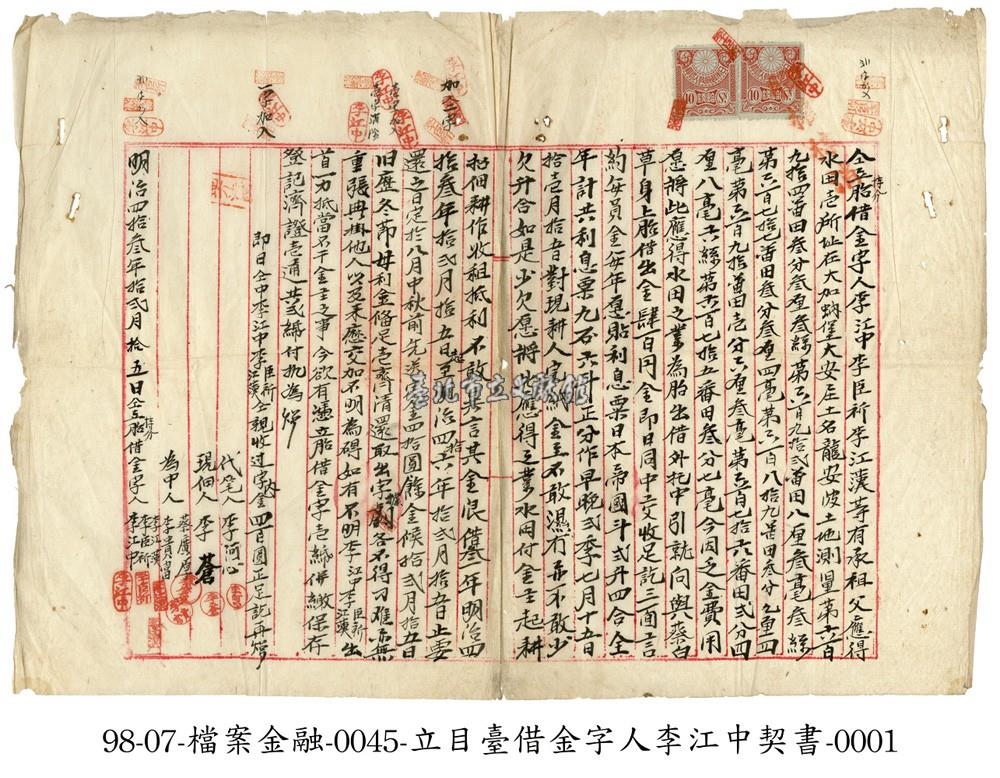 仝立胎借金字人李江中李臣祈李江漢等有承祖父應得
水田壱所址在大加蚋堡大安庄土名龍安坡土地測量第六百
九拾四番田叁分叁厘叁絲第六百九拾弍番田八厘叁毫叁絲
第六百七拾七番田叁分叁厘四毫第六百八拾九番田叁分九厘四
毫第六百九拾番田壱分六厘叁毫第五百七拾六番田弍分四
厘八毫六絲第六百七拾五番田叁分七毫今因乏金費用
愿將此應得水田之業為胎出借外托中引就向與蔡白
草身上胎借出金肆百円金即日同中交收足訖三面言
約每員金每年愿貼利息粟日本帝國斗弍升四合全
年計共利息粟九石六斗正分作早晚弍季七月十五日
拾壱月拾五日對現耕人完納金主不敢濕冇亦不敢少
欠升合如是少欠愿將此應得之業水田付金主起耕
招佃耕作收租抵利不敢異言其金限叁年明治四
拾叁年拾弍月拾五日起至明治四拾六年拾弍月拾五日止要
還之日定於八月中秋前先送定金四拾圓餘金候拾弍月拾五日
旧曆冬節母利金備足壱齊清還取出字據各不得刁難亦無
重張典掛他人以及來歷交加不明為碍如有不明李江中李臣祈江漢出
首一力抵當不干金主之事今欲有憑立胎借金字壱紙併繳保存
登記濟證壱通共弍紙付執為炤
即日仝中李江中李臣祈江漢仝親收过字內金四百圓正足訖再炤
代笔人 李河心
現佃人 李蒼
為中人 蔡廣厚
李貴富
明治四拾叁年拾弍月拾五日仝立胎借金字人 李江漢
李臣祈
李江中
持分
持分
加立字
一字加入
10 SN
10 SN
臺北市立文獻館
98-07-檔案金融-0045-立目臺借金字人李江中契書-0001